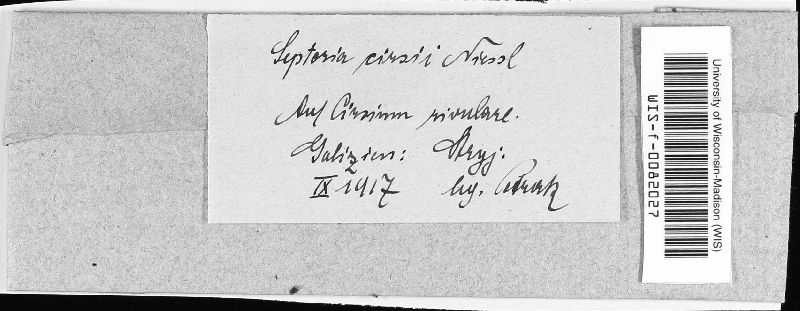 Septoria cirsii Niessl
Auf Cirsium rivulare.
Galizien: Stryj.
IX 1917 lg. Petrak
University of Wisconsin-Madison (WIS)
WIS-f-0082027